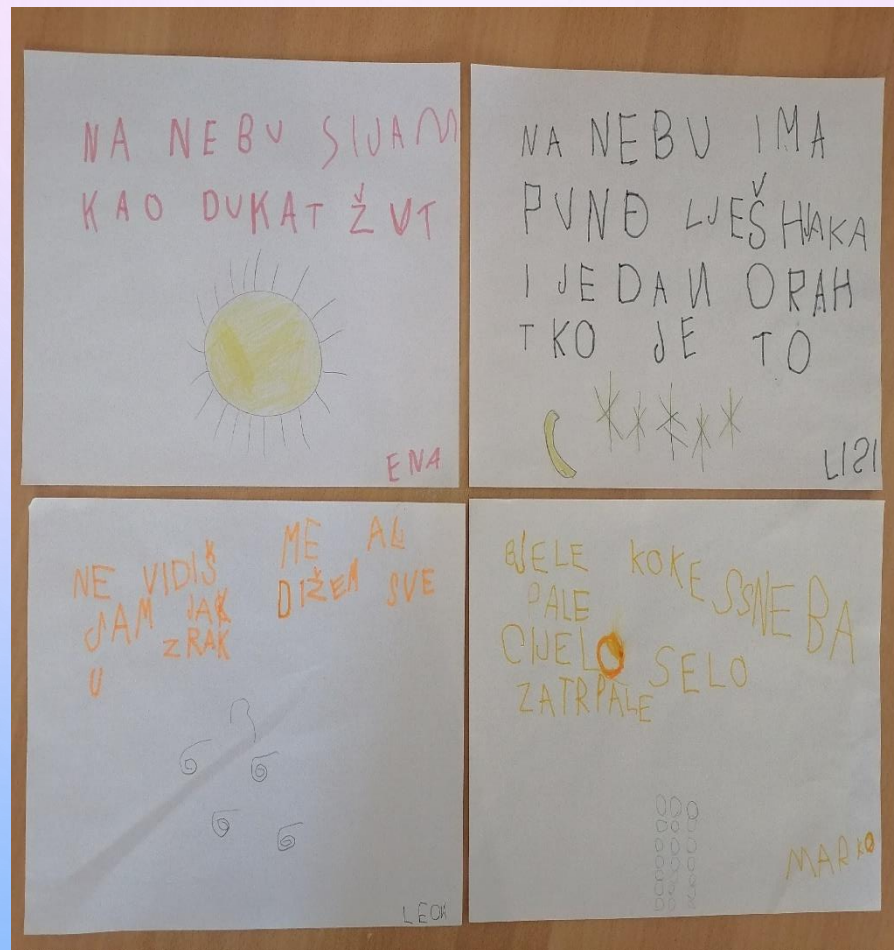 NA NEBU SIJAM
KAO DUKAT ŽUT
ENA
NA NEBU IMA
PUNO LJEŠNJAKA
I JEDAN ORAH
TKO JE TO
LIZI
NE VIDIŠ ME AL
SAM JAK DIŽEM SVE
U ZRAK
LEON
BJELE KOKE SSNEBA
PALE
CIJELO SELO
ZATRPALE
MARKO